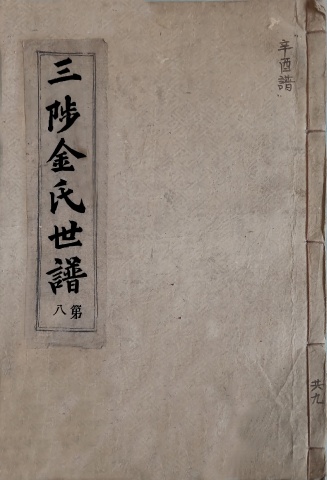 辛酉譜
共九
三陟金氏世譜
第八